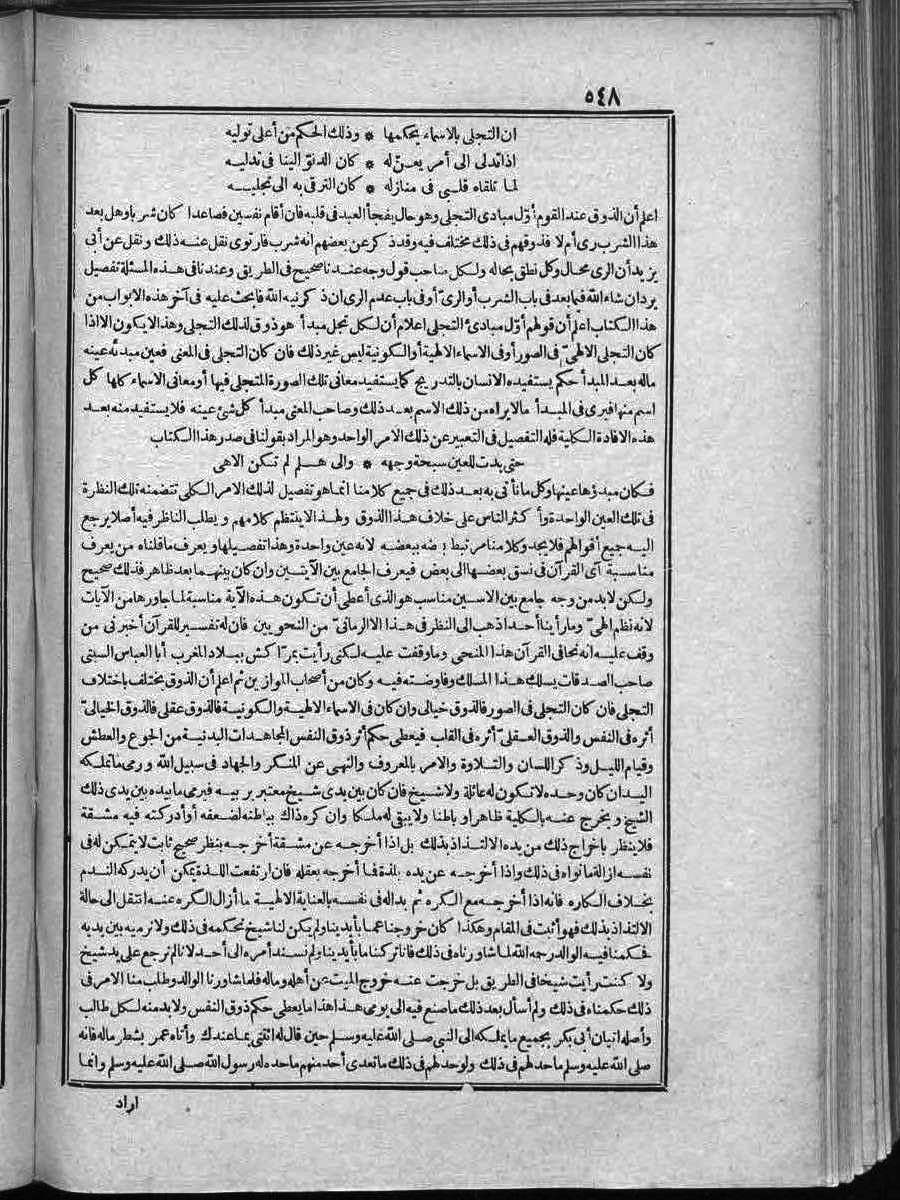 ٥٤٨
ان التجلى بالاسماء يحكمها * وذلك الحكم من أعلى توليه
اذا تدلى الى أمر يعن له * كان الدنو الينا فى تدليه
لما تلقاه قلبى فى منازله * كان الترقى به الى تجليه
اعلم أن الذوق عند القوم أول مبادى التجلى وهو حال يفجأ العبد فى قلبه فان أقام نفسين فصاعدا كان شربا وهل بعد
هذا الشرب رى أم لا فذوقهم فى ذلك مختلف فيه وقد ذكر عن بعضهم انه شرب فارتوى نقل عنه ذلك ونقل عن أبى
يزيد أن الرى محال وكل نطق بحاله ولكل صاحب قول وجه عندنا صحيح فى الطريق وعندنا فى هذه المسئلة تفصيل
يرد ان شاء الله فيما بعد فى باب الشرب أو الرىّ أو فى باب عدم الرى ان ذكرنيه الله فابحث عليه فى آخر هذه الابواب من
هذا الكتاب اعلم أن قولهم أول مبادئ التجلى اعلام أن لكل تجل مبدأ هو ذوق لذلك التجلى وهذا لا يكون الا اذا
كان التجلى الالهىّ فى الصور أو فى الاسماء الالهية أو الكونية ليس غير ذلك فان كان التجلى فى المعنى فعين مبدئه عينه
ماله بعد المبدأ حكم يستفيده الانسان بالتدريج كما يستفيد معانى تلك الصورة المتجلى فيها أو معانى الاسماء كلها كل
اسم منها فيرى فى المبدأ مالا يراه من ذلك الاسم بعد ذلك وصاحب المعنى مبدأ كل شئ عينه فلا يستفيد منه بعد
هذه الافادة الكلية فله التفصيل فى التعبير عن ذلك الامر الواحد وهو المراد بقولنا فى صدر هذا الكتاب
حتى بدت للعين سبحة وجهه * والى هلم لم تكن الاهى
فكان مبدؤها عينها وكل ما نأتى به بعد ذلك فى جميع كلامنا انما هو تفصيل لذلك الامر الكلى تتضمنه تلك النظرة
فى تلك العين الواحدة وأكثر الناس على خلاف هذا الذوق ولهذا لا ينتظم كلامهم ويطلب الناظر فيه أصلا يرجع
اليه جميع أقوالهم فلا يجد وكلامنا مرتبط بعضه ببعضه لانه عين واحدة وهذا تفصيلها ويعرف ما قلناه من يعرف
مناسبة آى القرآن فى نسق بعضها الى بعض فيعرف الجامع بين الآيتين وان كان بينهما بعد ظاهر فذلك صحيح
ولكن لا بد من وجه جامع بين الاسمين مناسب هو الذى أعطى أن تكون هذه الآية مناسبة لما جاورها من الآيات
لانه نظم الهىّ وما رأينا أحدا ذهب الى النظر فى هذا الا الرمانىّ من النحويين فان له تفسير للقرآن أخبرنى من
وقف عليه انه نحا فى القرآن هذا المنحى وما وقفت عليه لكنى رأيت بمرّاكش ببلاد المغرب أبا العباس السبتى
صاحب الصدقات يسلك هذا المسلك وفاوضته فيه وكان من أصحاب الموازين ثم اعلم أن الذوق يختلف باختلاف
التجلى فان كان التجلى فى الصور فالذوق خيالى وان كان فى الاسماء الالهية والكونية فالذوق عقلى فالذوق الخيالىّ
أثره فى النفس والذوق العقلىّ أثره فى القلب فيعطى حكم أثر ذوق النفس المجاهدات البدنية من الجوع والعطش
وقيام الليل وذكر اللسان والتلاوة والامر بالمعروف والنهى عن المنكر والجهاد فى سبيل الله ورمى ما تملكه
اليدان كان وحده لا تكون له عائلة ولا شيخ فان كان بين يدى شيخ معتبر يربيه فيرمى ما بيده بين يدى ذلك
الشيخ ويخرج عنه بالكلية ظاهرا وباطنا ولا يبقى له ملكا وان كره ذلك بباطنه لضعفه أو أدركته فيه مشقة
فلا ينظر باخراج ذلك من يده الالتذاذ بذلك بل اذا أخرجه عن مشقة أخرجه بنظر صحيح ثابت لا يتمكن له فى
نفسه ازالة ما نواه فى ذلك واذا أخرجه عن يده بلذة فما أخرجه بعقله فان ارتفعت اللذة يمكن أن يدركه الندم
بخلاف الكاره فانه اذا أخرجه مع الكره ثم بدا له فى نفسه بالعناية الالهية ما أزال الكره عنه انتقل الى حالة
الالتذاذ بذلك فهو أثبت فى المقام وهكذا كان خروجنا عما بأيدينا ولم يكن لنا شيخ نحكمه فى ذلك ولا نرميه بين يديه
فحكمنا فيه الوالد رحمه الله لما شاورناه فى ذلك فانا تركنا ما بأيدينا ولم نسند أمره الى أحد لانا لم نرجع على يد شيخ
ولا كنت رأيت شيخا فى الطريق بل خرجت عنه خروج الميت عن أهله وماله فلما شاورنا الوالد وطلب منا الامر فى
ذلك حكمناه فى ذلك ولم أسأل بعد ذلك ما صنع فيه الى يومى هذا هذا ما يعطى حكم ذوق النفس ولا بد منه لكل طالب
وأصله اتيان أبى بكر بجميع ما يملكه الى النبى صلى الله عليه وسلم حين قال له ائتنى بما عندك وأتاه عمر بشطر ماله فانه
صلى الله عليه وسلم ما حد لهم فى ذلك ولو حد لهم فى ذلك ما تعدى أحد منهم ما حده له رسول الله صلى الله عليه وسلم وانما
اراد